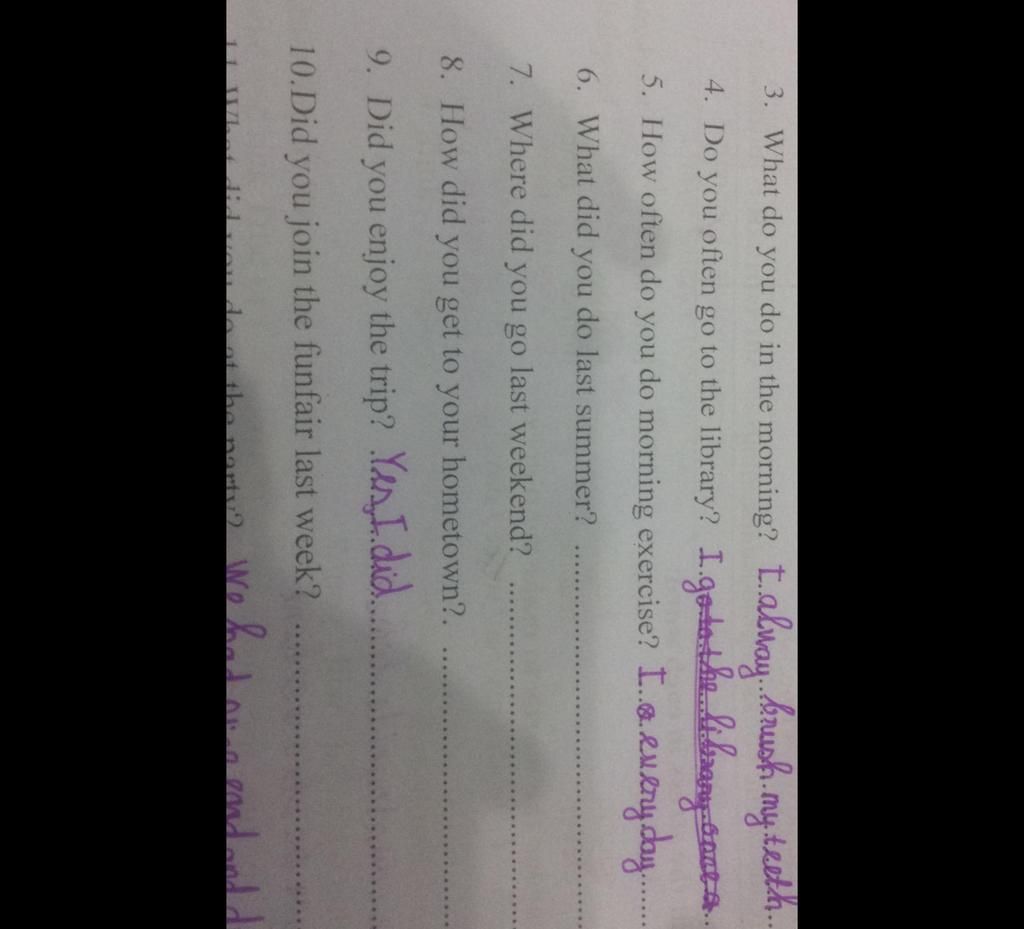 3. What do you do in the morning? I alway brush my teeth
4. Do you often go to the library? I go to the library once a
5. How often do you do morning exercise? I every day
6. What did you do last summer?
7. Where did you go last weekend?
8. How did you get to your hometown?
9. Did you enjoy the trip? Yes, I did
10. Did you join the funfair last week?
11. What did you do at the party? We had and